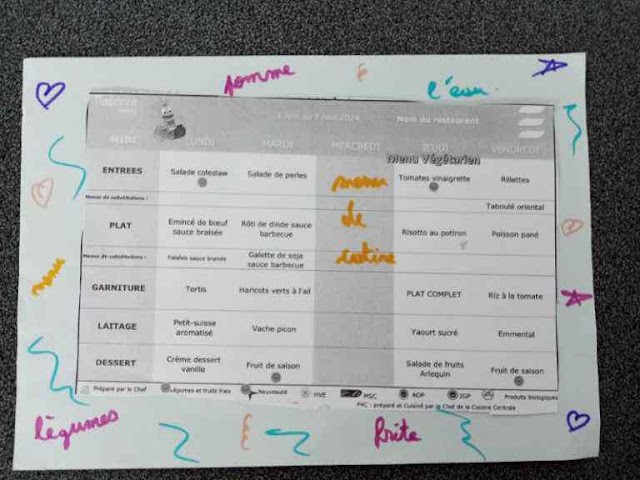 pomme
l'eau
7 Juin 2024
Nom du restaurant
MIDI LUNDI MARDI MERCREDI JEUDI VENDREDI
Menu Végétarien
ENTREES Salade coleslaw Salade de perles Tomates vinaigrette Rillettes
Menus de substitutions : Taboulé oriental
PLAT Emincé de bœuf sauce braisée Rôti de dinde sauce barbecue Risotto au potiron Poisson pané
Menus de substitutions : Falafels sauce braisée Galette de soja sauce barbecue
GARNITURE Tortis Haricots verts à l'ail PLAT COMPLET Riz à la tomate
LAITAGE Petit-suisse aromatisé Vache picon Yaourt sucré Emmental
DESSERT Crème dessert vanille Fruit de saison Salade de fruits Arlequin Fruit de saison
menu
de
cantine
menu
Préparé par le Chef Légumes et fruits frais Nouveauté HVE MSC AOP IGP Produits biologiques
PSC : préparé et Cuisiné par le Chef de la Cuisine Centrale
légumes
frite